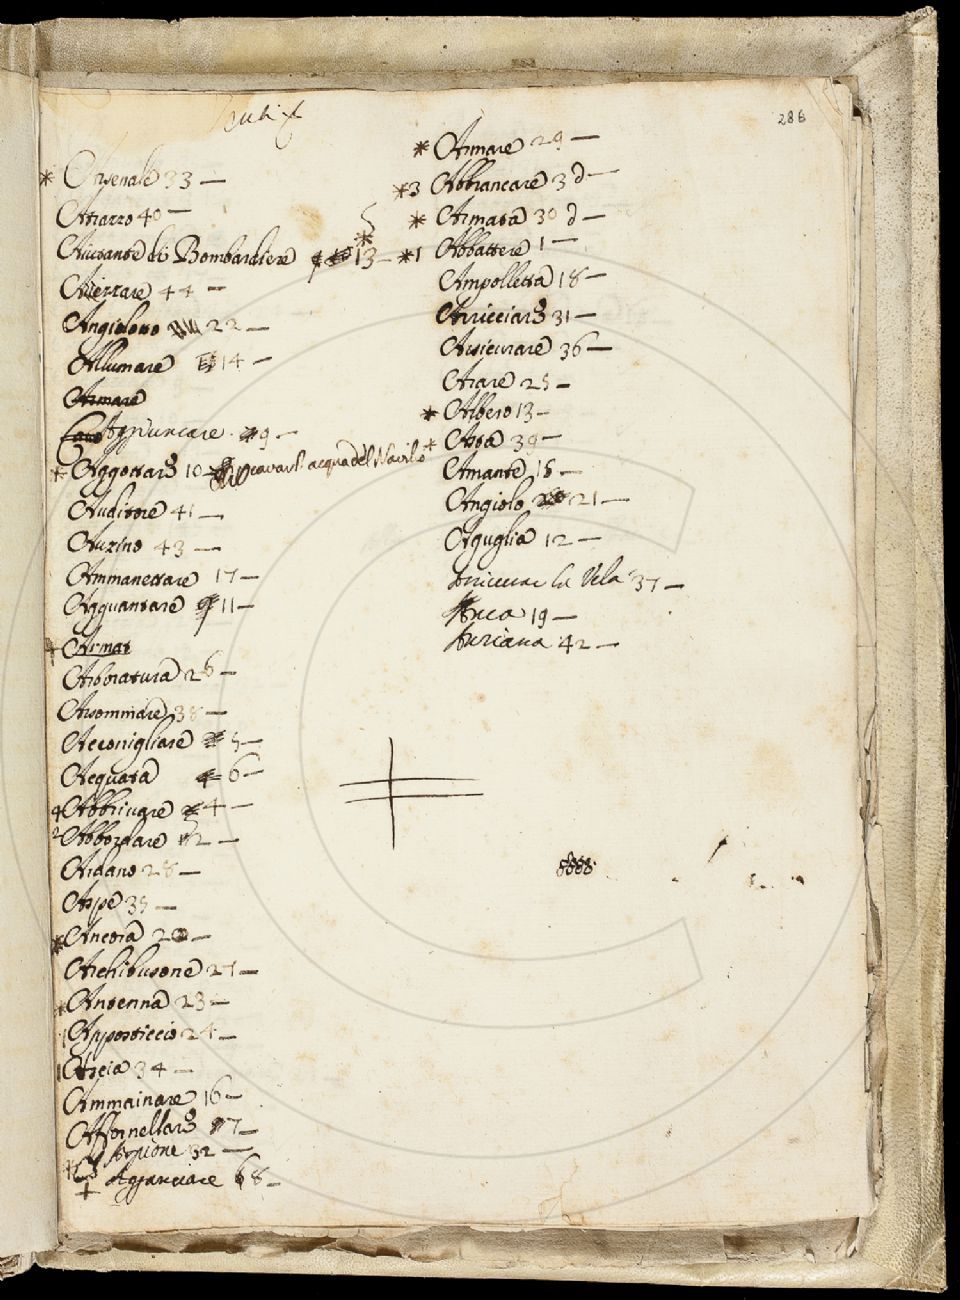 286
* Arsenale 33 —
Attrazzo 40 —
Aiutante di Bombardiere 13 —
Afferrare 44 —
Angioloto 22 —
Allumare 14 —
Armare
Agguncare 9 —
* Aggottare 10 cavar l'acqua del Navilo
Auditore 41 —
Auzino 43 —
Ammanettare 17 —
Agguantare 11 —
+ Armat
Arboratura 26 —
Assommare 38 —
Acconigliare 5 —
Acquata 6 —
4 Abbrivare 4 —
2 Abbordare 2 —
Ardano 28 —
Aspe 35 —
* Ancora 20 —
Archibusone 27 —
* Antenna 23 —
Apposticcio 24 —
Ascia 34 —
Ammainare 16 —
Affornellare 7 —
Arpione 32 —
+ Agganciare 8 —
* Armare 29 —
*3 Abbrancare 3 d —
* Armata 30 d —
*1 Abbattere 1 —
Ampolletta 18 —
Arricciare 31 —
Assicurare 36 —
Arare 25 —
* Albero 13 —
+ Asta 39 —
Amante 15 —
Angiolo 21 —
Aguglia 12 —
la Vela 37 —
Anca 19 —
42 —